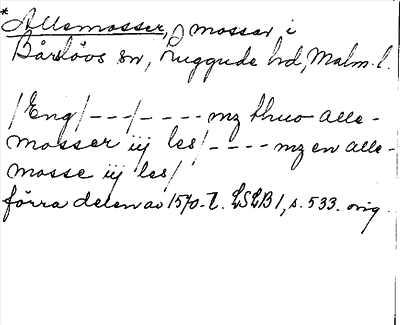 *Allemosser, mossar i
Bårslövs sn, Luggude hd, Malm. l.
/Eng/---/---- mz thuo alle-
mosser iij les/---- mz en alle-
mosse iij les/
förra delen av 1570-t. LSLB 1, s. 533. orig.